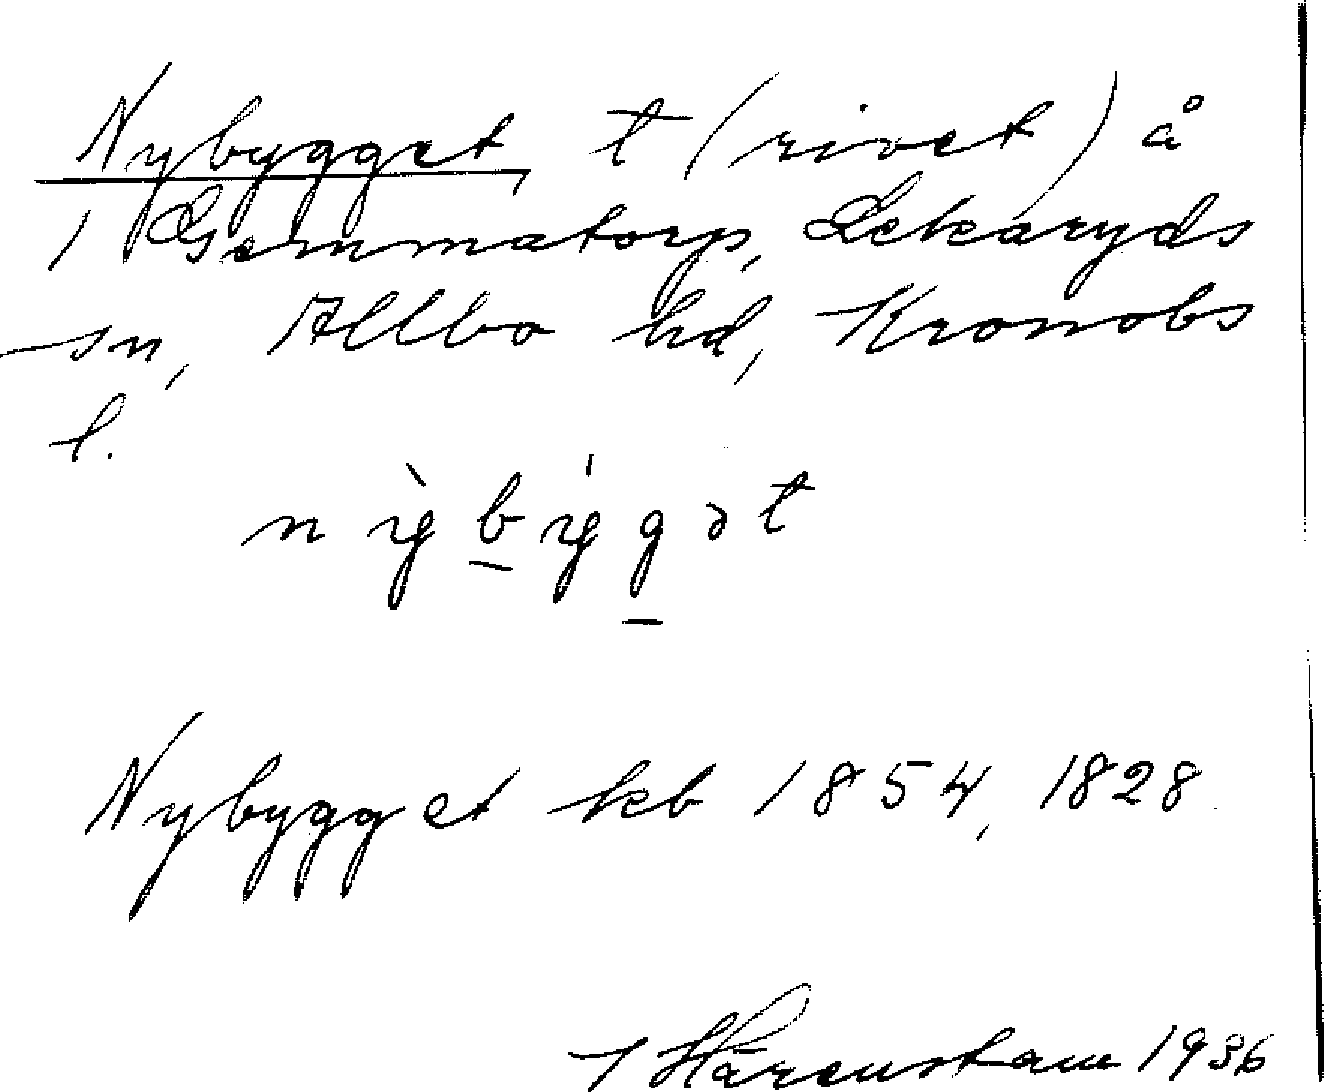 Nybygget, t (rivet) å
1 Gemmatorp, Lekaryds
sn, Allbo hd, Kronobs
l.
nỳbýgət
Nybygget kb 1854, 1828.
J Härenstam 1936